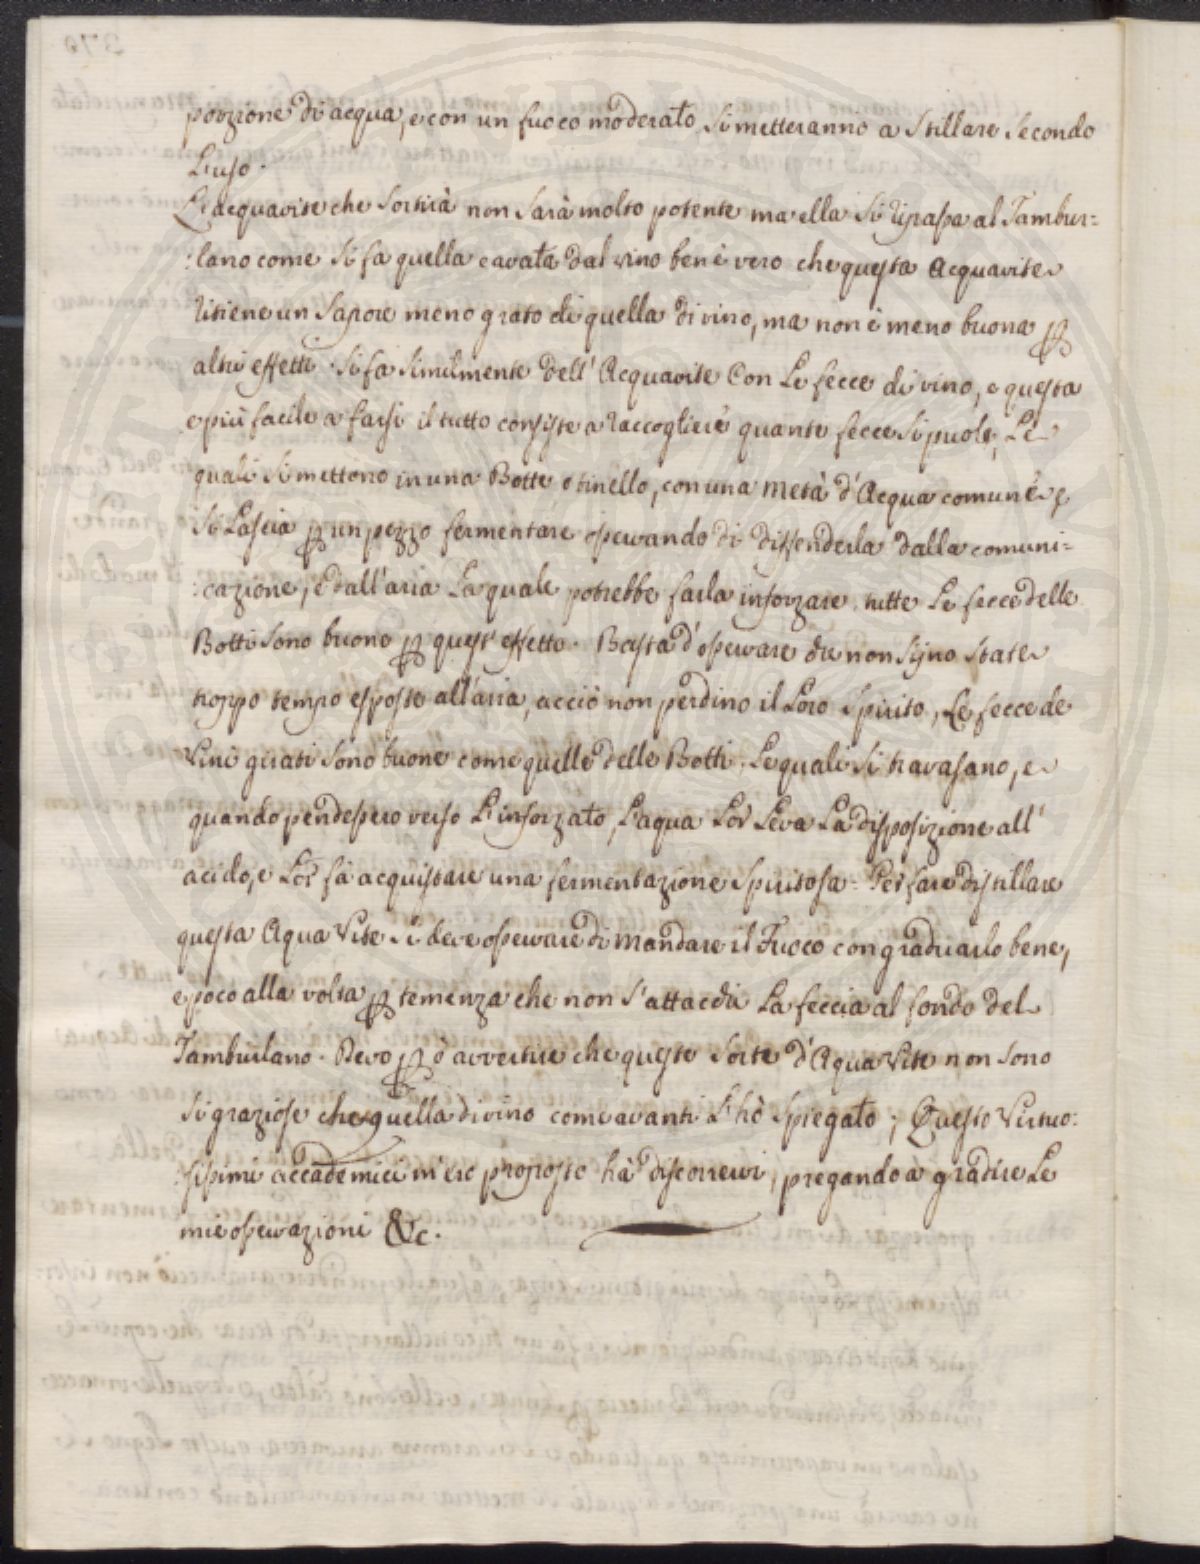 porzione di acqua, e con un fuoco moderato si metteranno a stillare secondo
L'uso.
L'acquavite che sortirà non sarà molto potente ma ella si ripassa al Tambur=
:lano come si fa quella cavata dal vino ben è vero che questa Acquavite
ritiene un sapore meno grato di quella di vino, ma non è meno buona ꝑ
altri effetti. Si fa similmente dell' Acquavite Con Le fecce di vino, e questa
e più facile a farsi il tutto consiste a raccogliere quante fecce si puole, Le
quali si mettono in una Botte o tinello, con una metà d'Acqua comune, e
si Lascia ꝑ un pezzo fermentare osservando di diffenderla dalla comuni=
:cazione, e dall'aria La quale potrebbe farla inforzare. tutte Le fecce delle
Botti sono buone ꝑ quest' effetto. Basta d'osservare che non sijno state
troppo tempo esposte all'aria, acciò non perdino il Loro spirito, Le fecce de
Vini girati sono buone come quelle delle Botti, Le quali si travasano, e
quando pendessero verso L'inforzato, L'aqua Lor Leva La disposizione all'
acido, e Lor fà acquistare una fermentazione spiritosa. Per fare distillare
questa Aqua Vite si deve osservare di mandare il Fuoco con graduarlo bene,
e poco alla volta ꝑ temenza che non s'attacchi La feccia al fondo del
Tamburlano. Devo ꝑò avvertire che queste sorte d'Aqua Vite non sono
sì graziose che quella di vino come avanti L'hò spiegato; Questo Virtuo:
:sissimi accademici m'ero proposto hà discorrervi, pregando à gradire Le
mie osservazioni &c.